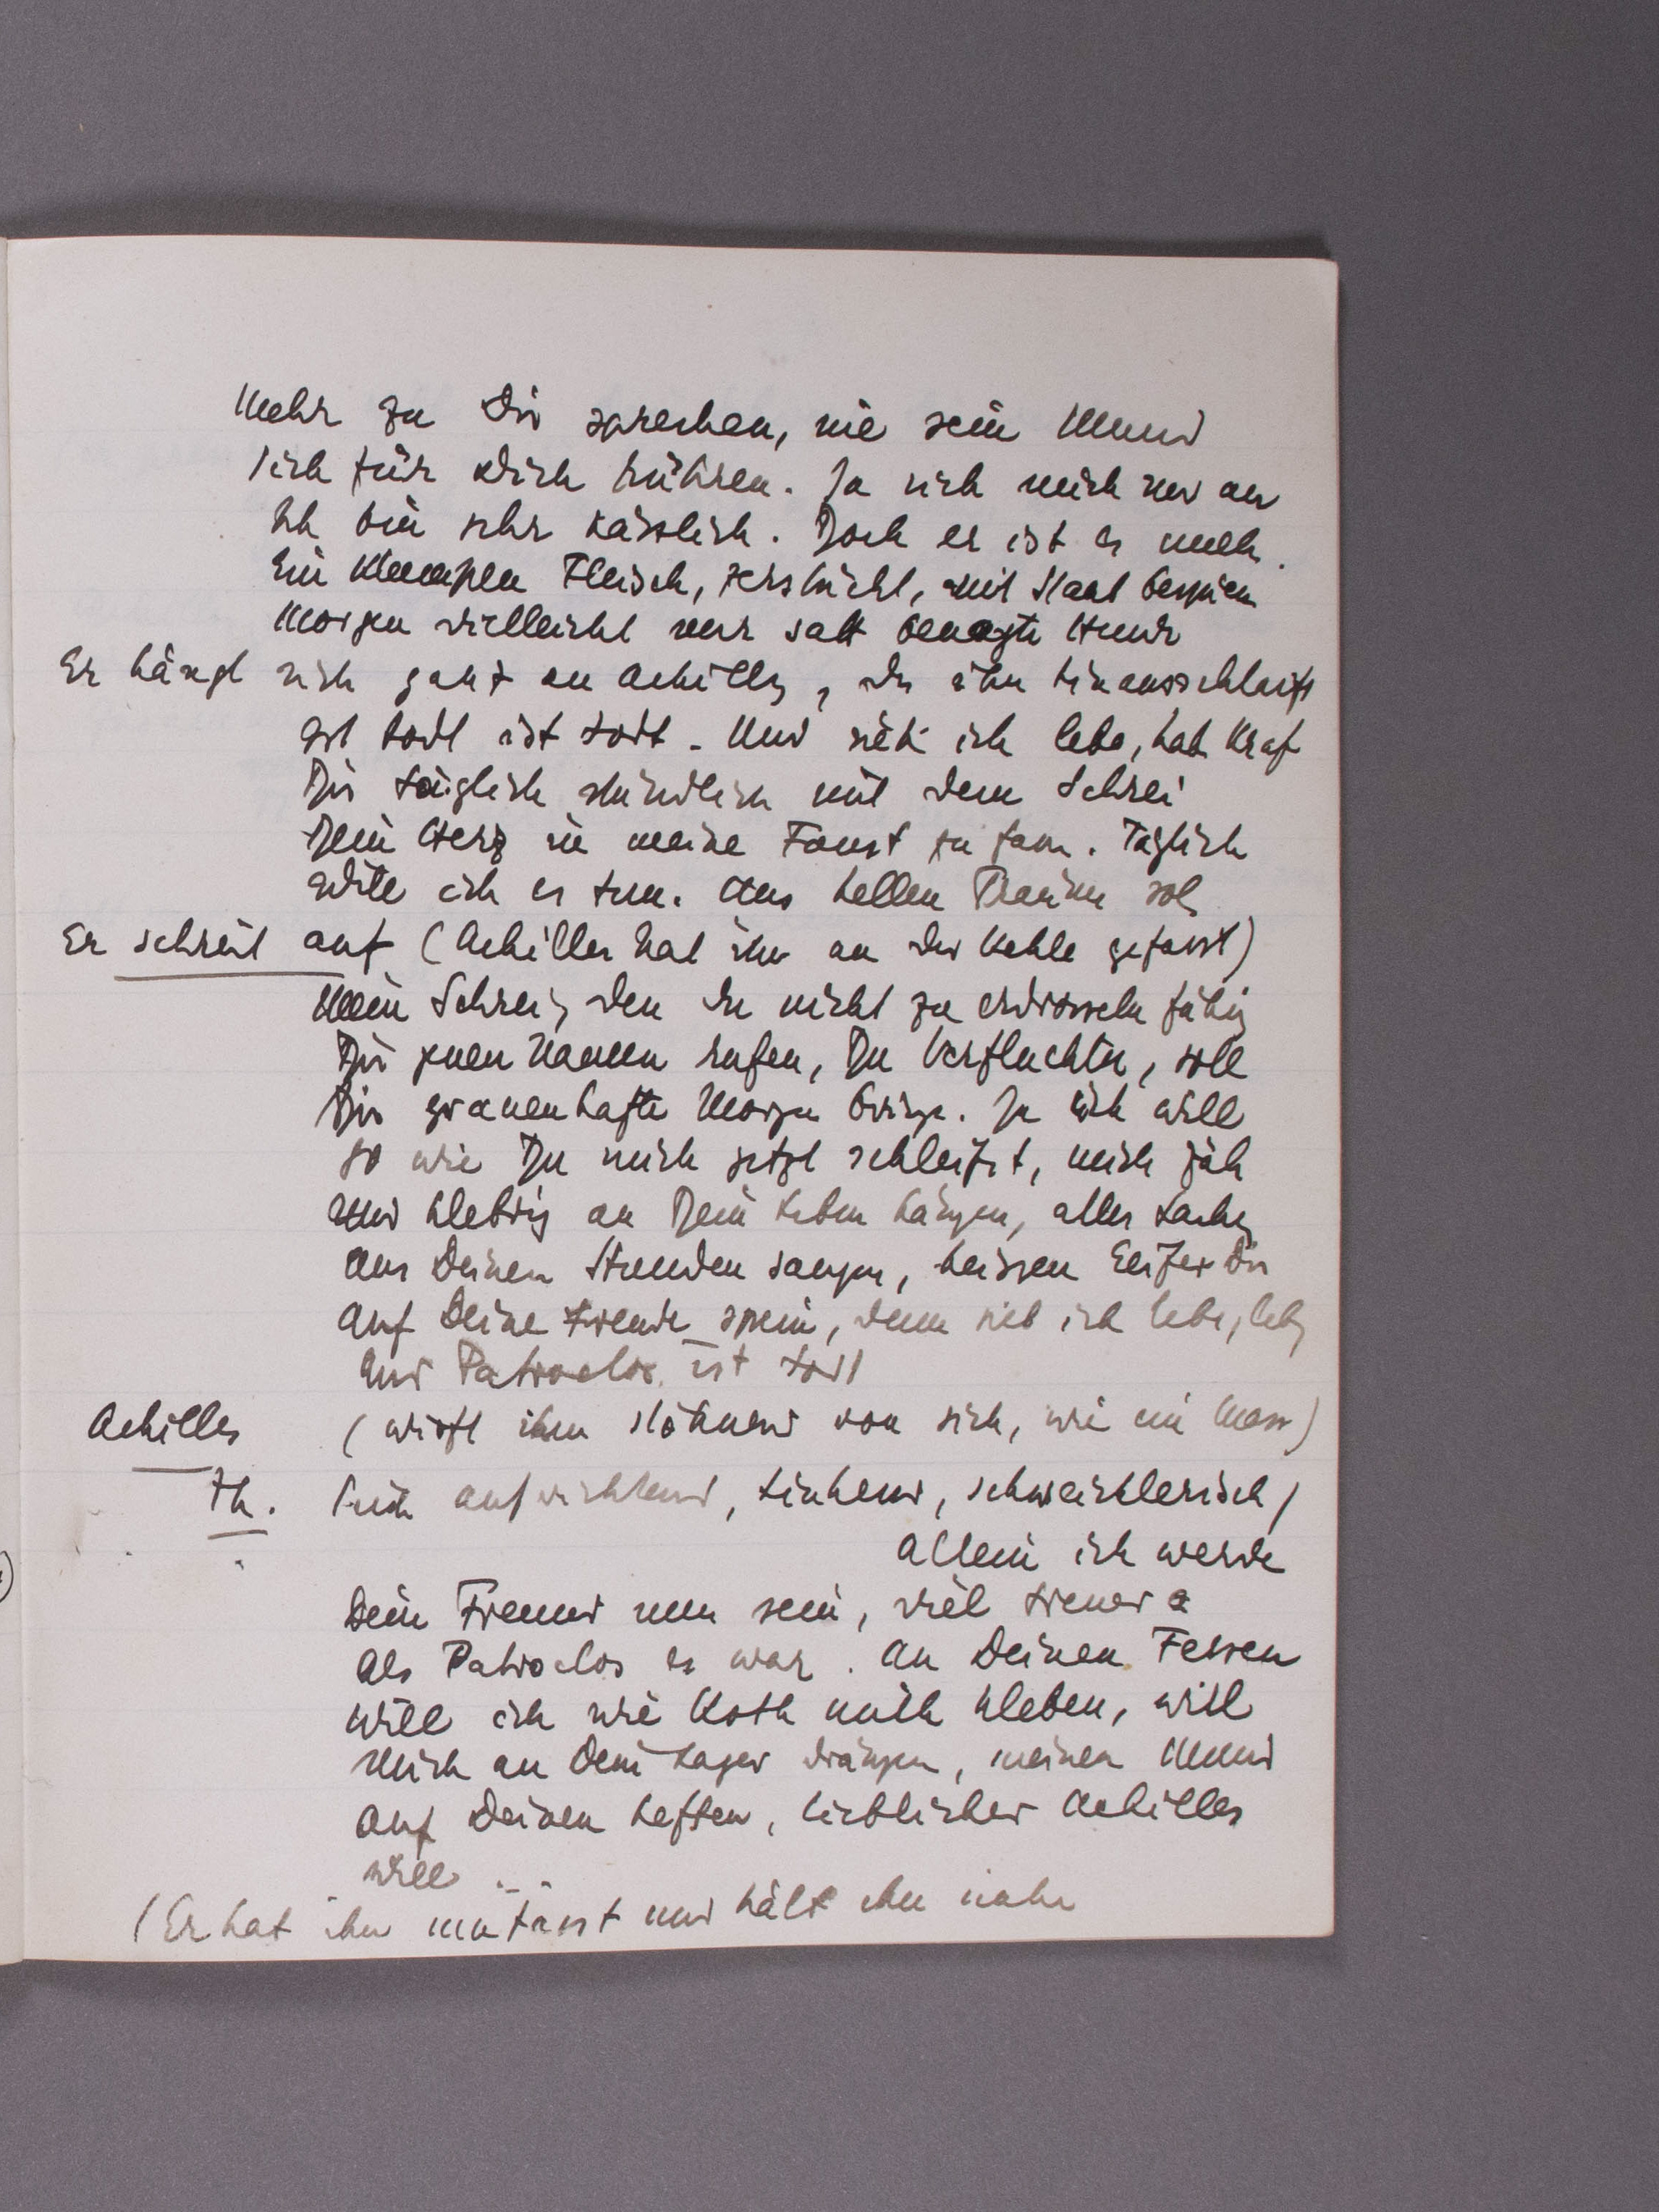 Mehr zu Dir sprechen, nie sein Mund
sich für Dich rühren. Ja sieh mich nur an
Ich bin sehr hässlich. Doch er ist es mehr.
Ein Klumpen Fleisch, zerstückt, mit Staub bespien
Morgen vielleicht von satt benagte Hund
Er hängt sich ganz an Achilles, der ihn hinausschleift
Ist todt ist todt. Und sieh ich lebe, hab Kraft
Dir täglich stündlich mit dem Schrei
Dein Herz in meine Faust zu fassen. Täglich
will ich es tun. Aus hellen Träumen soll
Er schreit auf (Achilles hat ihn an der Kehle gefasst)
Mein Schrei, den du nicht zu erdrosseln fähig
Dir jenen Namen rufen, Du Verfluchter, soll
Dir grauenhafte Morgen bringen. Ja ich will
so wie Du mich jetzt schleifst, mich zäh
und klebrig an Dein Leben hängen, alles Lachen
aus Deinen Stunden saugen, heissen Eifer Dir
auf Deine Freude spein, denn sieh ich lebe, lebe
und Patroclos ist todt
Achilles (wirft ihn stöhnend von sich, wie ein)
Th. sich aufrichtend, hinkend, schmeichlerisch)
Allein ich werde
Dein Freund nun sein, viel treuer
als Patroclos es war. An Deinen Fersen
will ich wie Koth mich kleben, will
Mich an Dein Lager drängen, meinen Mund
auf Deinen heften, lieblicher Achilles
will ...
(Er hat ihn umfasst und hält ihn nahe